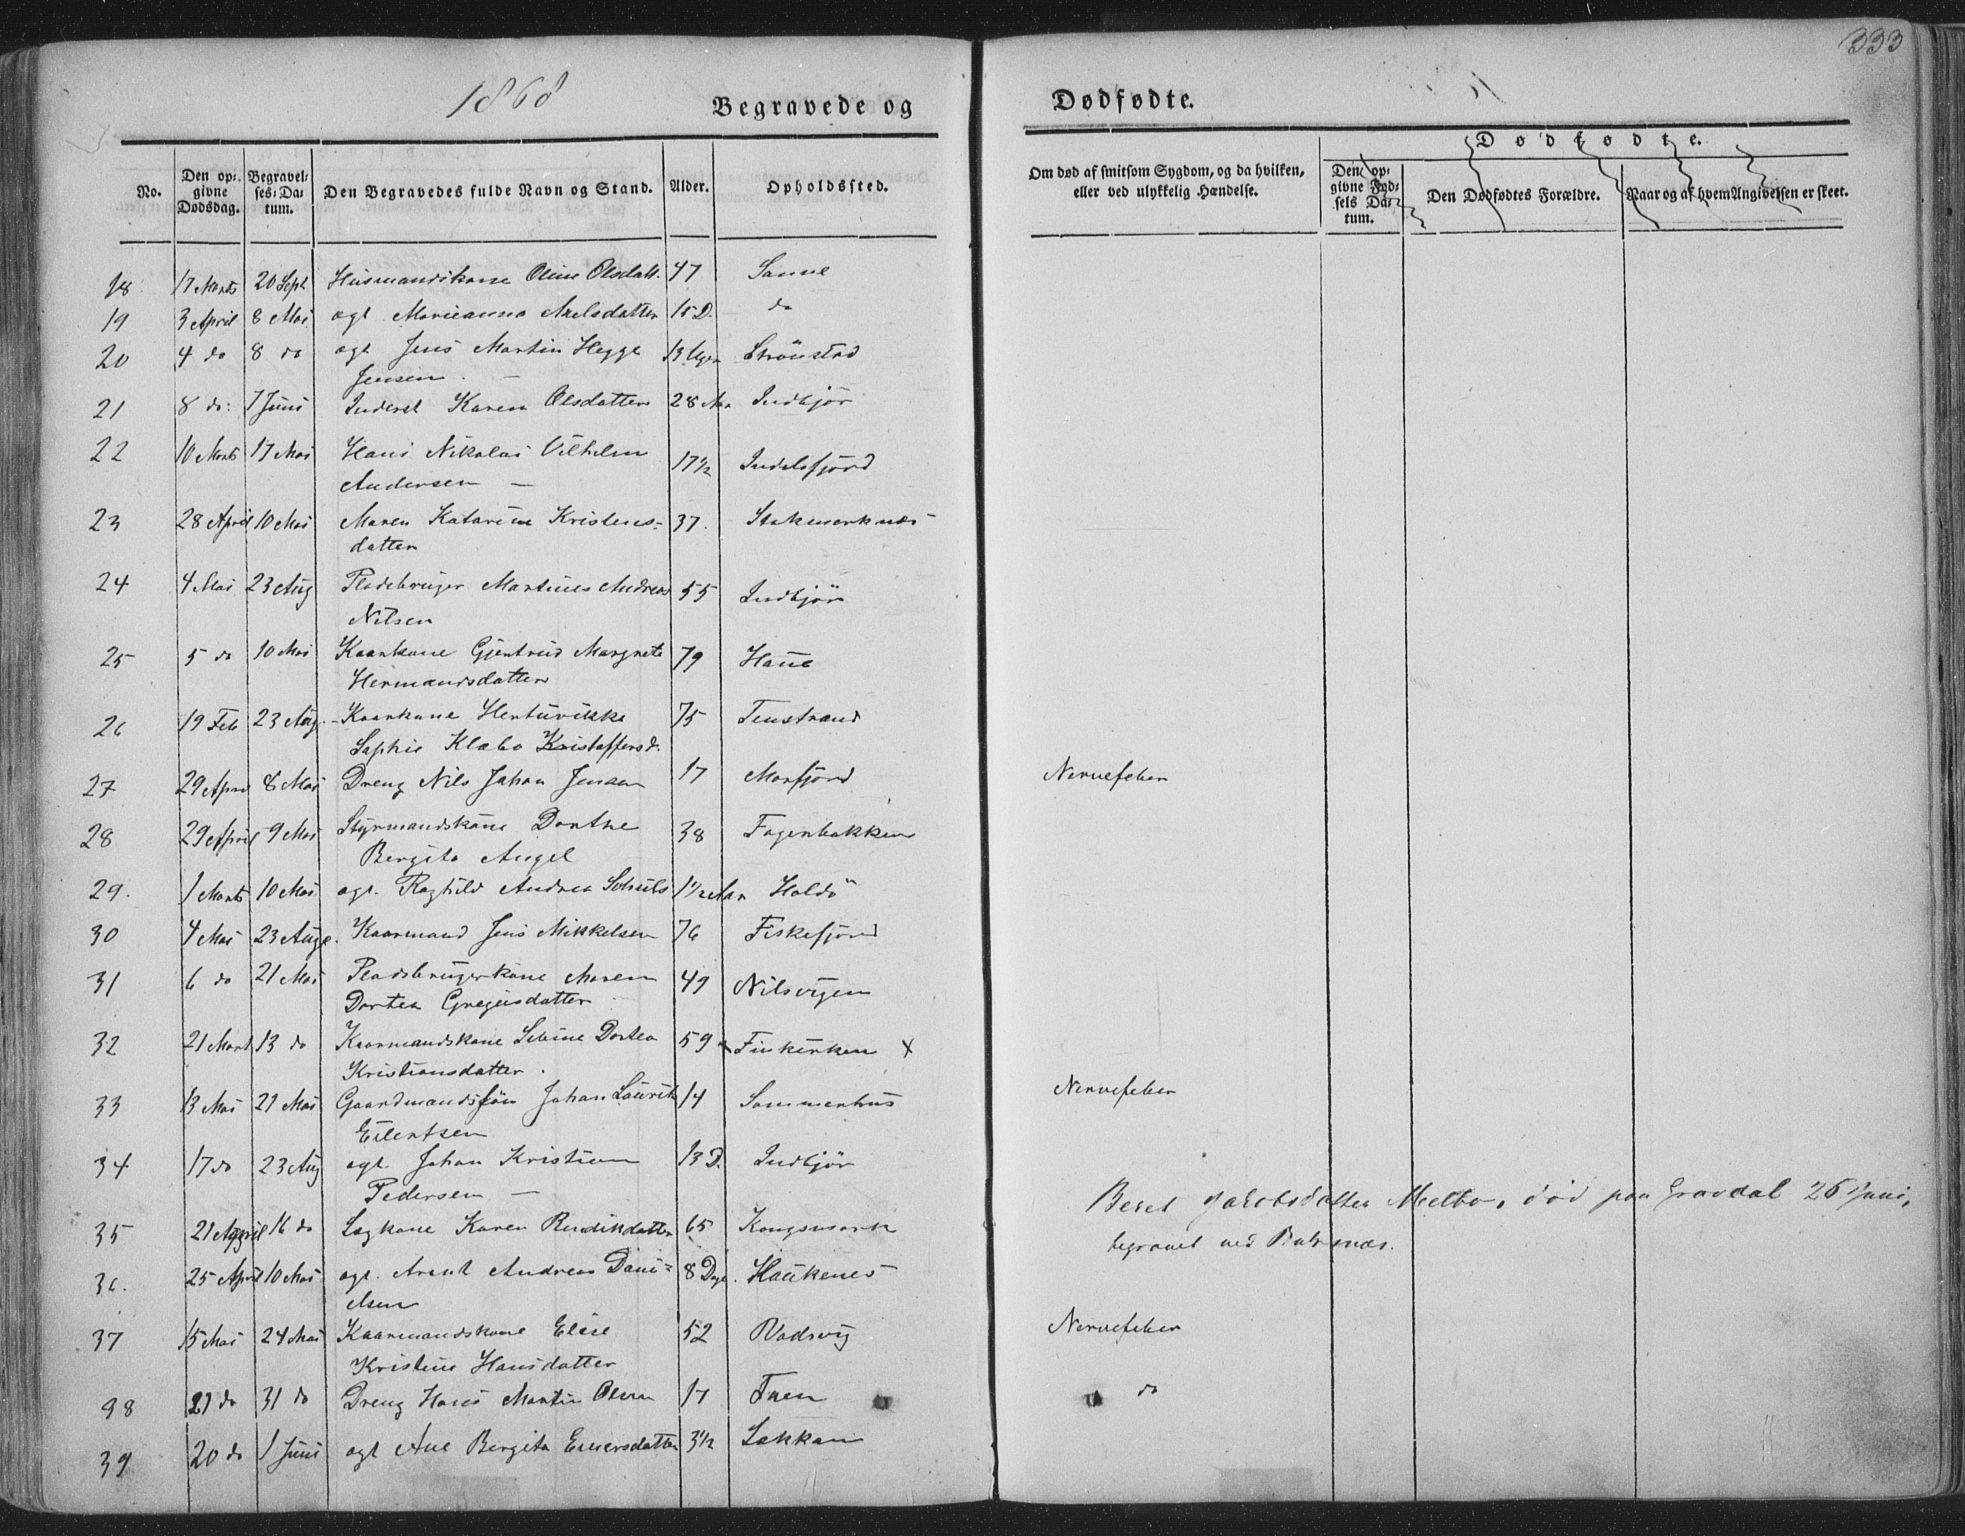 333
1868
Begravede og Dødfødte.
No. Den opgivne Dødsdag. Begravelses-Datum. Den Begravedes fulde Navn og Stand. Alder. Opholdssted. Om død af smitsom Sygdom, og da hvilken, eller ved ulykkelig Hændelse. Dødfødte. Den opgivne Fødsels Datum. Den Dødfødtes Forældre. Naar og af hvem Angivelsen er skeet.
18. 17 Marts 20 Sept Husmandskone Oline Olsdatt. 47 Sanne
19 3 April 8 Mai ægt Marieanna Axelsdatter 15 D. do
20 4 do 8 do ægt Jens Martin Hegge 13 Uger Strönstad
Jensen.
21 8 do: 7 Juni Inderst Karen Olsdatter 28 Aar Indbjör
22 10 Marts 17 Mai Hans Nikolai Vilhelm 17½ Indelsfjord
Andersen
23 28 April 10 Mai Maren Katarine Kristens- 37. Stokmarknæs
datter
24 4 Mai 23 Aug Pladsbruger Martinus Andreas 55 Indbjör
Nilsen
25 5 do 10 Mai Kaarkone Gjertrud Margrete 79 Haue
Hermandsdatter
26 19 Feb 23 Aug. Kaarkone 75 Tenstrand
Sophie Klæbo Kristoffersd.
27 29 Apr 8 Mai Dreng Nils Johan Jensen 17 Morfjord Nervefeber
28 29 April 9 Mai Styrmandskone Dorthe 38 Fagerbakken
Bergita Angel
29. 1 Marts 10 Mai ægt. Ragnild Andrea Schults 1½ Aar Holdö
30 4 Mai 23 Aug. Kaarmand Jens Mikkelsen 76 Fiskefjord
31 6 do 21 Mai Pladsbrugerkone Maren 49 Nilsvigen
Dortea Gregusdatter
32 21 Mart 13 do Kaarmandskone Sebine Dortea 59 x Finkirken x
Kristiansdatter.
33 13 Mai 21 Mai Gaardmandssön Johan Laurits 14 Sommerhus Nervefeber
Eilertsen
34 17 do 23 Aug ægt. Johan Kristian 13 D. Indbjör
Pedersen
Beret Jakobsdatter Melbo, död paa Gravdal 26 Juni,
35 21 April 16 do Lægkone Karen 65 Kongsmark
begravet ved Buksnæs.
36. 25 April 10 Mai ægt. Arent Andreas Dani- 8 Dage. Haukenes
elsen
37 15 Mai 24 Mai Kaarmandskone Elise 52 Vadsvig Nervefeber
Kristine Hansdatter
38 21 do 31 do Dreng Hans Martin Olsen 17 Fuen do
39 20 do 1 Juni ægt Ane Bergita Einersdatter 3½ Løkkan